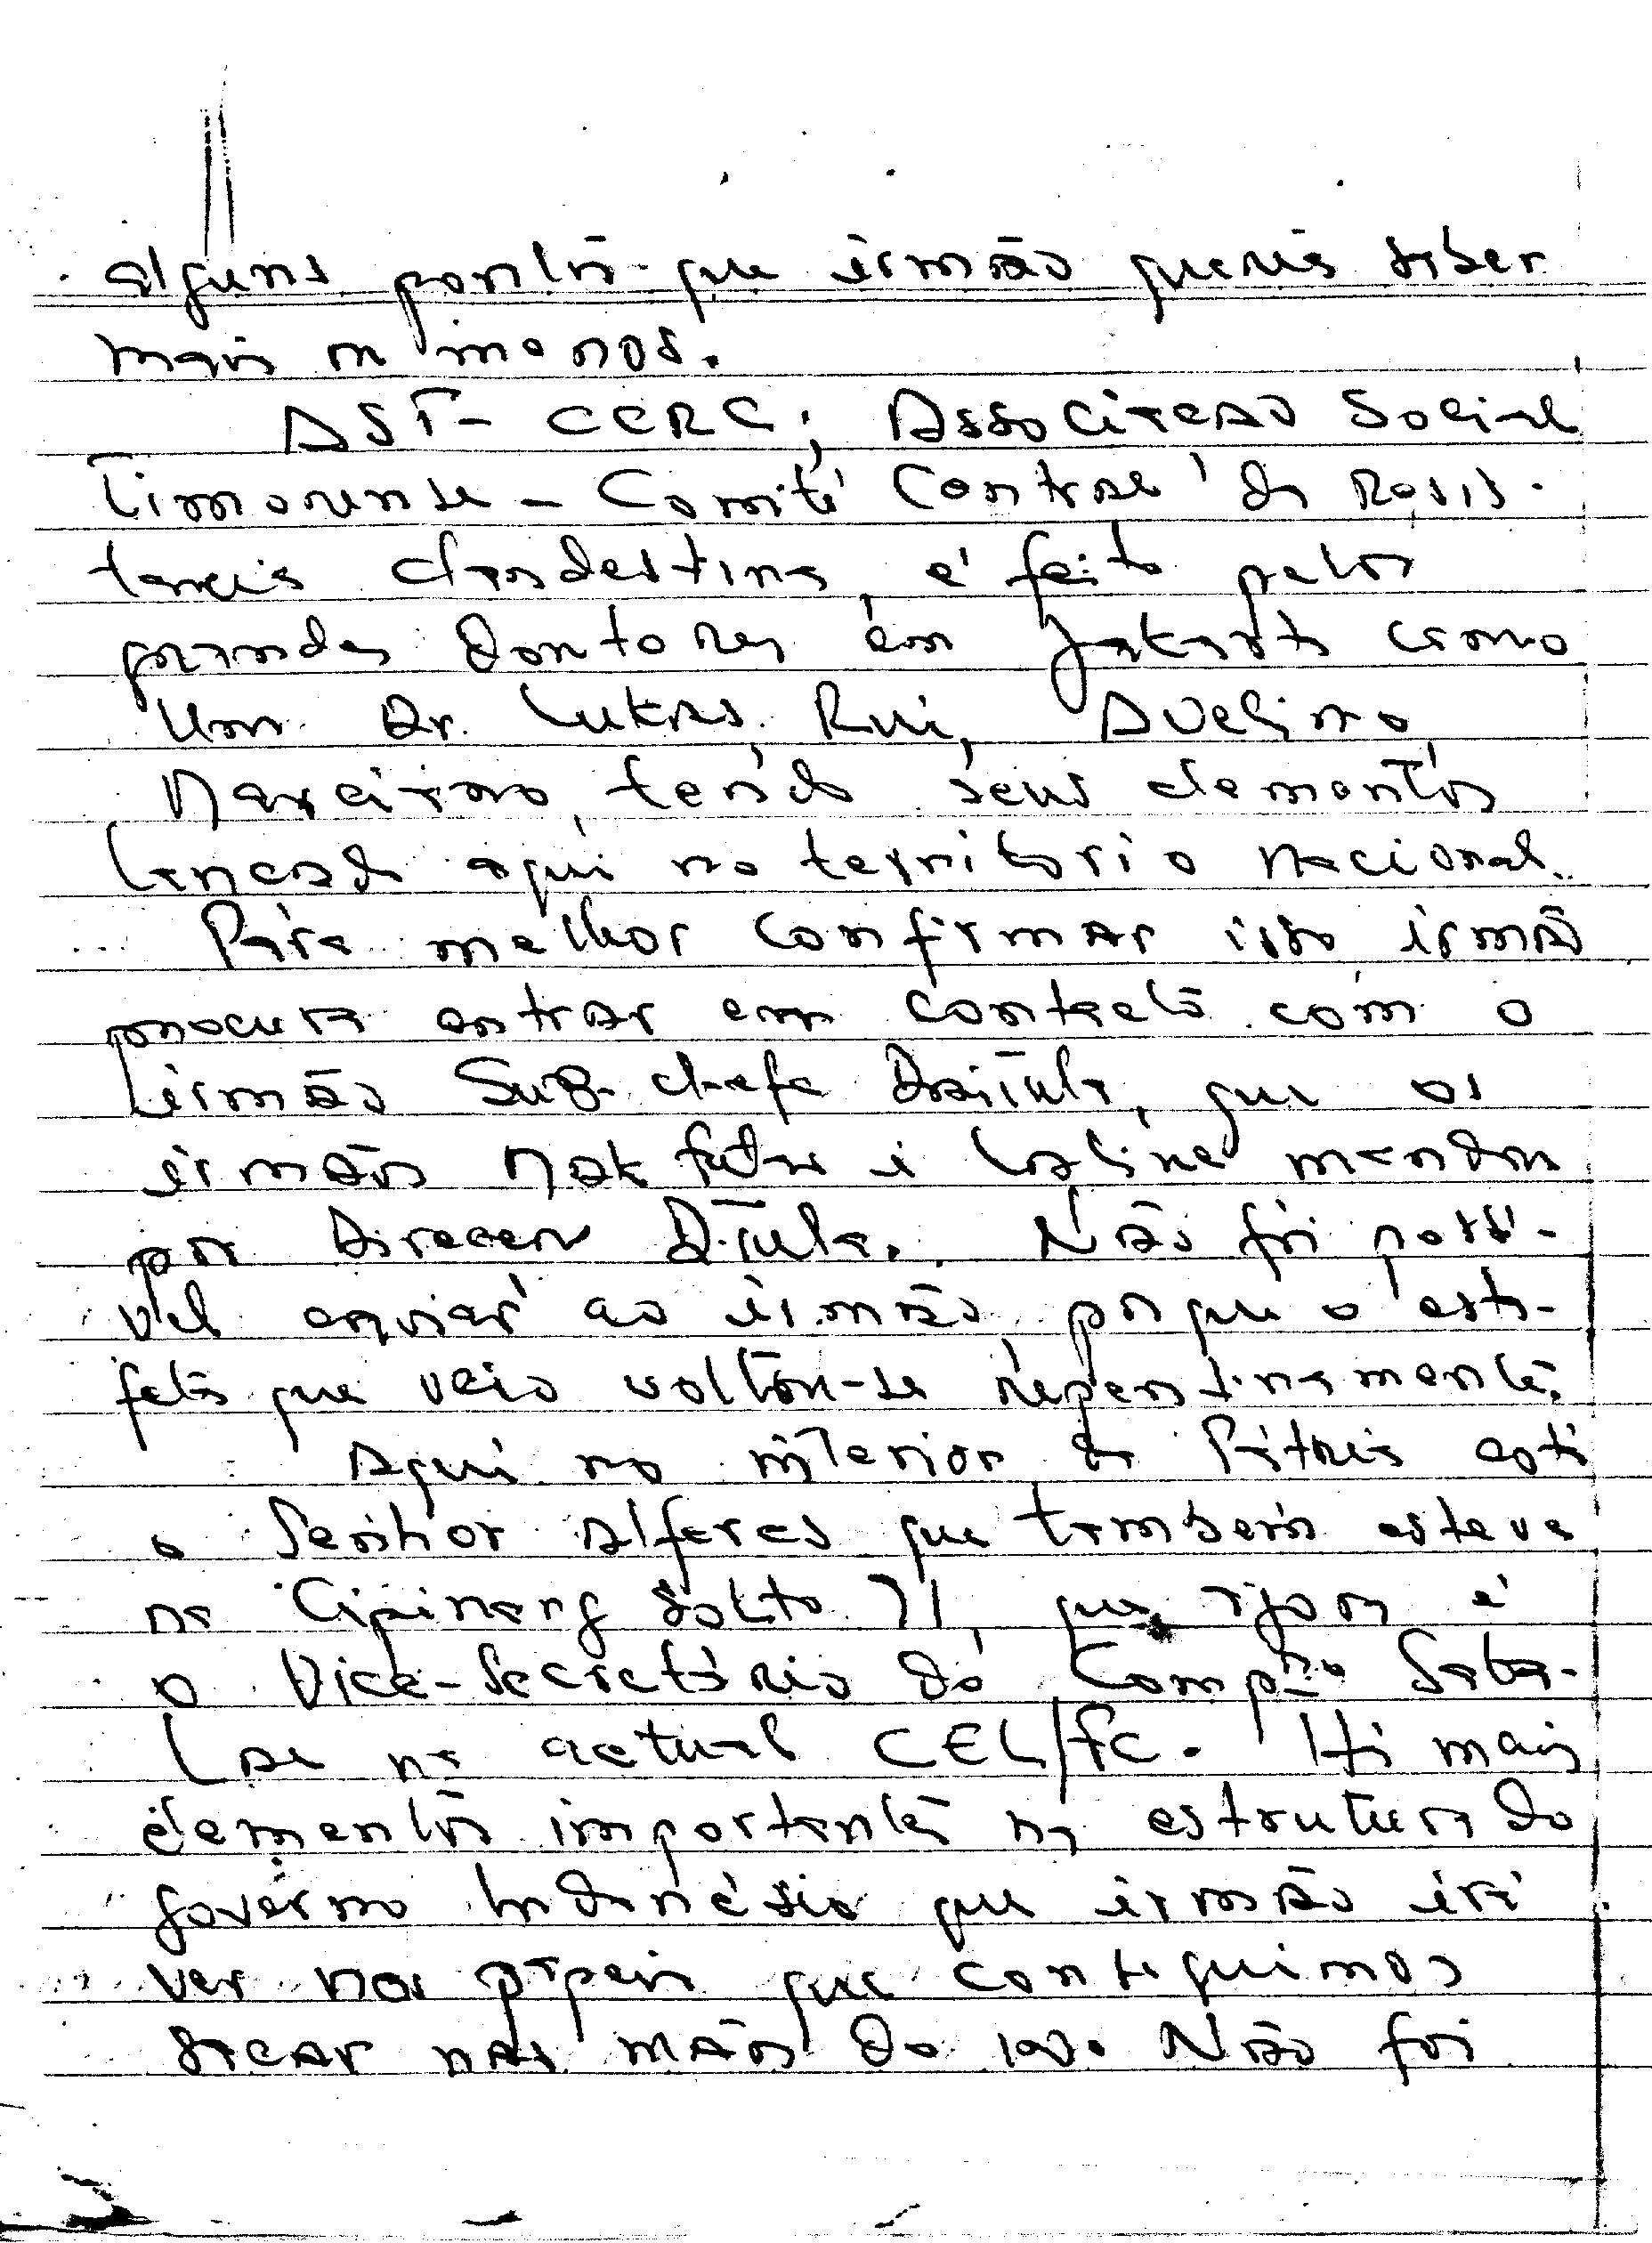 alguns pontos que irmão queria saber
mais ou menos.
AST- CCRC, Associacão Social
Timorense - Comité Central da Resis-
tencia clandestina, é feito pelos
grandes Doutores em Jakarta como
um Dr. Lukas. Rui, Avelino,
Marciano, tendo seus elementos
lancado aqui no territorio nacional.
Para melhor confirmar isto irmão
procura entrar em contacto com o
irmão Sub-chefe que os
irmãos Mak i mandou
por Não foi possi-
vel enviar ao irmão porque o esta-
feta que veio voltou-se repentinamente.
Aqui no interior da Pátria está
o Senhor Alferes que tambem esteve
na Cipinang que agora é
o Vice-Secretário do Comp.ro Saba-
lae na actual CEL/FC. Há mais
elementos importantes na estrutura do
governo Indonésio que irmão irá
ver nos papeis que conseguimos
sacar nas mãos do Não foi